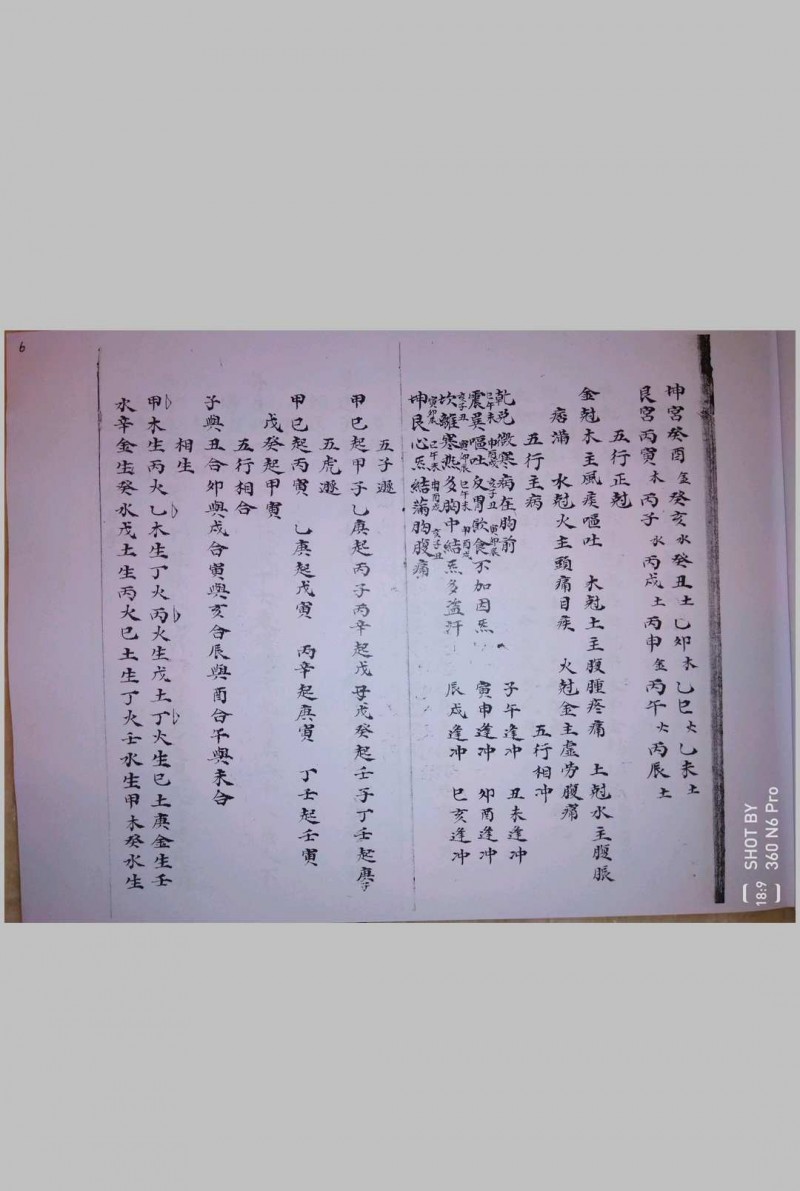 坤宮癸酉金癸亥水癸丑土乙卯木乙巳火乙未土
艮宮丙寅木丙子水丙戌土丙申金丙午火丙辰土
五行正尅
金尅木主風疾嘔吐 木尅土主腹腫疼痛 土尅水主腹脹
痞滿 水尅火主頭痛目疾 火尅金主虛勞腹痛
五行主病 五行相冲
乾 寒病在胸前 子午逢冲 丑未逢冲
巳午未 亥子丑 寅卯辰
震巽嘔吐反胃飲食不加因炁 寅申逢冲 卯酉逢冲
亥子丑 寅卯辰 巳午未 申酉戌
坎離寒热多胸中結炁多盜汗 辰戌逢冲 巳亥逢冲
寅卯辰 巳午未 申酉戌 亥子丑
坤艮心炁結滿胸腹痛
五子遯
甲巳起甲子乙庚起丙子丙辛起戊子戊癸起壬子丁壬起庚子
五虎遯
甲巳起丙寅 乙庚起戊寅 丙辛起庚寅 丁壬起壬寅
戊癸起甲寅
五行相合
子與丑合卯與戌合寅與亥合辰與酉合午與未合
相生
甲木生丙火乙木生丁火丙火生戊土丁火生巳土庚金生壬
水辛金生癸水戊土生丙火巳土生丁火壬水生甲木癸水生
6
SHOT BY
360 N6 Pro
18:9